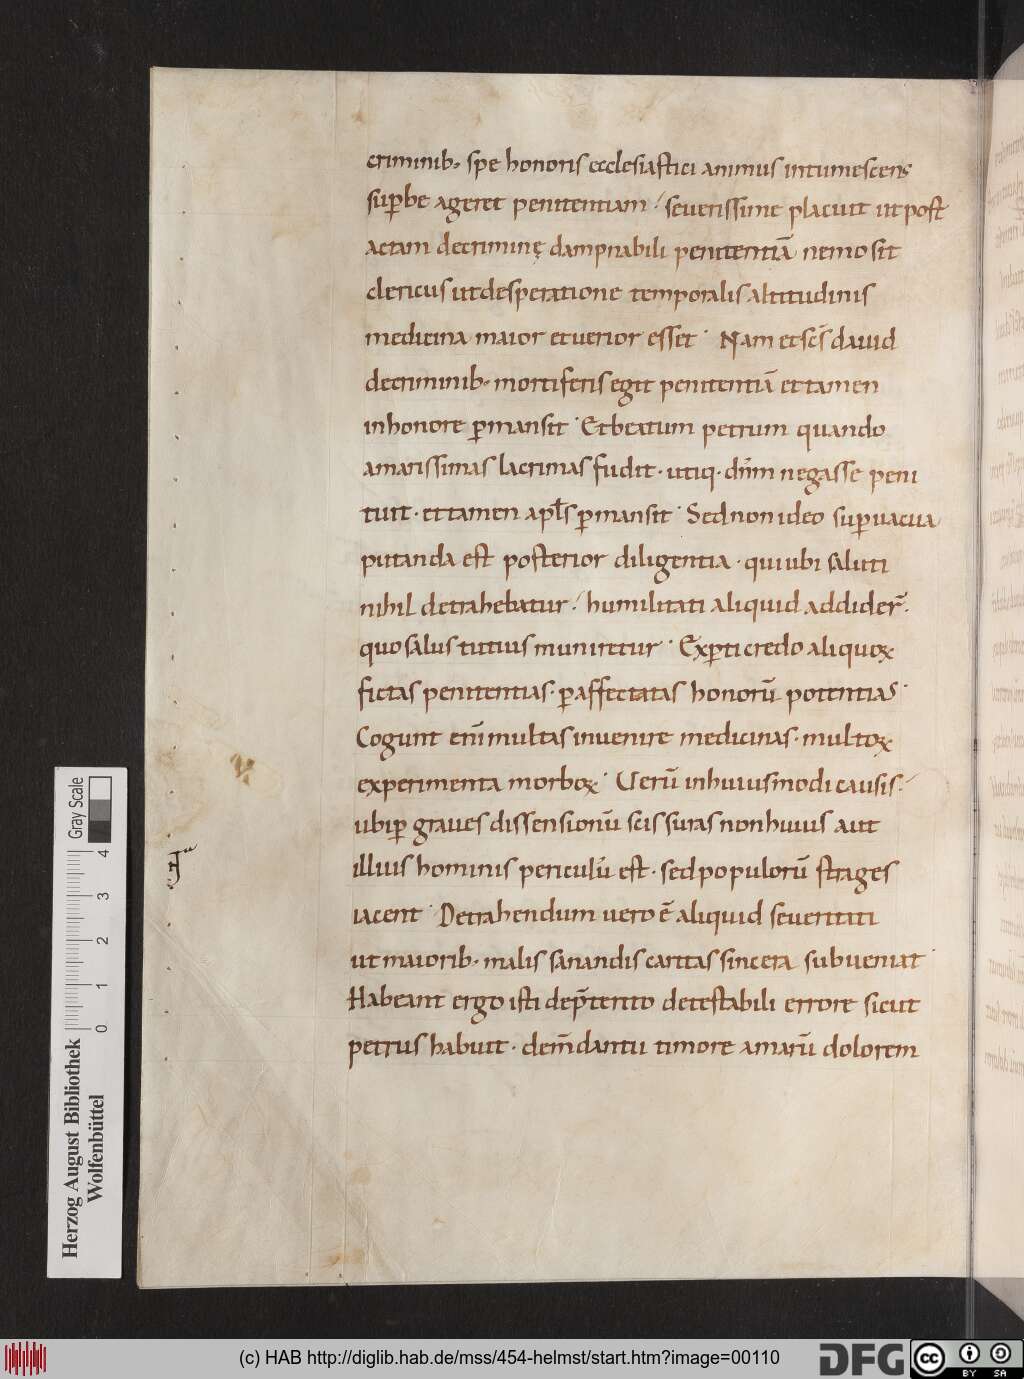 criminib· spe honoris ecclesiastici animus intumescens
sup̱be ageret penitentiam · seuerissime placuit ut post
actam decriminę dampnabili penitentiā nemo sit
clericus ut desperatione temporalis altitudinis
medicina maior et uerior esset · Nam et sc̄s dauid
decriminib· mortiferis egit penitentiā et tamen
in honore p̱mansit · Et beatum petrum quando
amarissimas lacrimas fudit · utiq· dn̄m negasse peni
tuit · et tamen apl̄s p̱mansit · Sed non ideo sup̱uacua
putanda est posterior diligentia · qui ubi saluti
nihil detrahebatur · humilitati aliquid addider̄ ·
quo salus tutius muniretur · Exp̱ti credo aliquoꝝ
fictas penitentias · p̱ affectatas honorū potentias ·
Cogunt eni̅ multas inuenire medicinas · multoꝝ
experimenta morboꝝ · Uerū in huiusmodi causis ·
ubi p̱ graues dissensionū scissuras non huius aut
illius hominis periculū est · sed populorū strages
iacent · Detrahendum uero ē aliquid seueritati
ut maiorib· malis sanandis caritas sincera subueniat ·
Habeant ergo isti dep̄terito detestabili errore sicut
petrus habuit · dem̄dantii timore amarū dolorem
Herzog August Bibliothek
Wolfenbüttel
Gray Scale
0 1 2 3 4
(c) HAB http://diglib.hab.de/mss/454-helmst/start.htm?image=00110
DFG
cc
BY SA